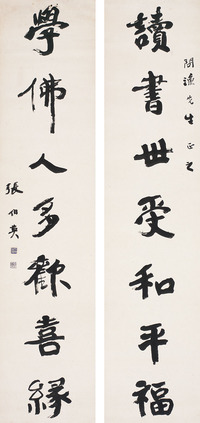 讀書世受和平福
先生正之
學佛人多歡喜緣
張伯英